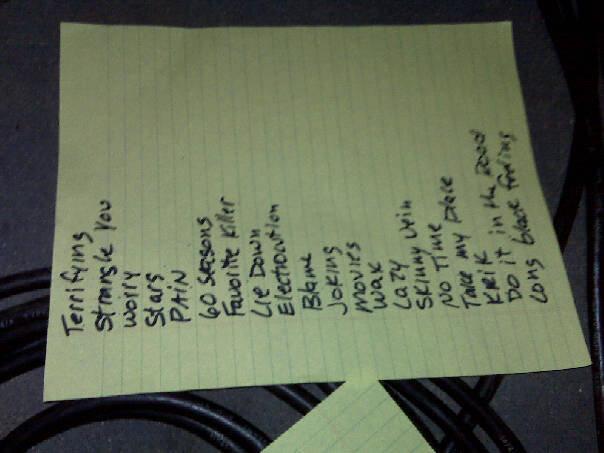 Terrifying
Strangle You
Worry
Stars
PAIN
60 Seasons
Favorite Killer
Lie Down
Electrocution
Blame
Joking
Movies
Wax
Lazy
Skinny Vein
No Time
Take my place
KRIK
Do it in the Road
Long black feeling